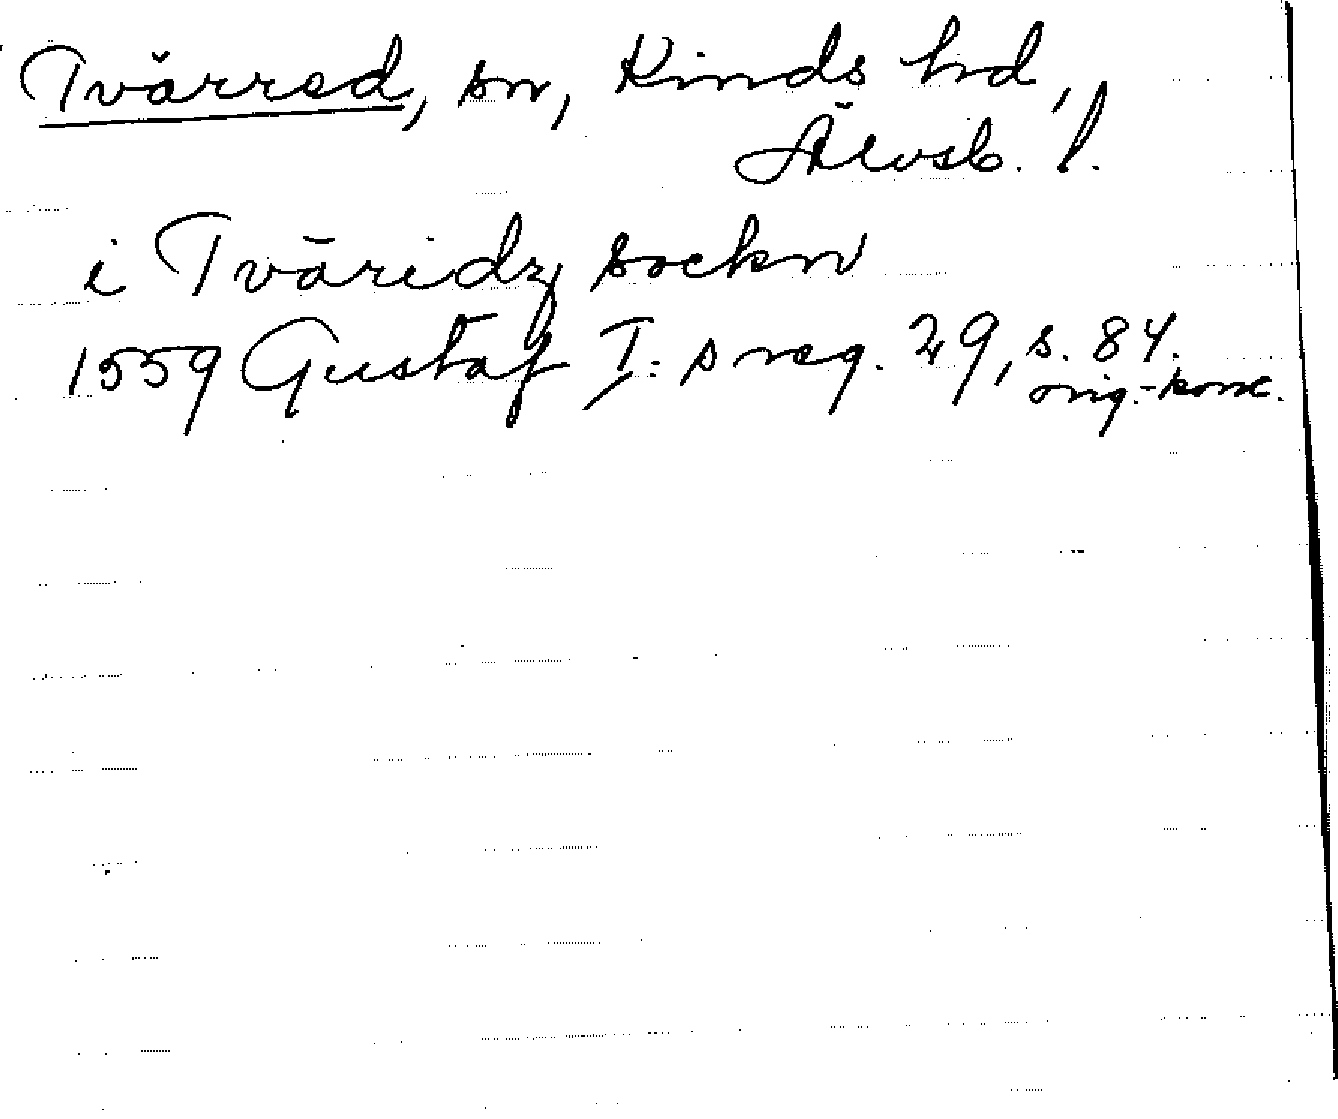 Tvärred, sn, Kinds hd,
Älvsb. l.
i Tväridz sockn
1559 Gustaf I:s reg. 29, s. 84.
orig.-konc.